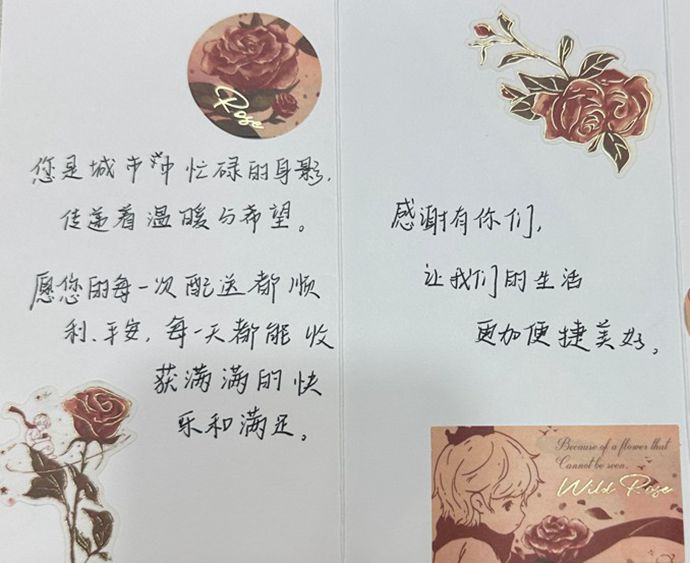 Rose
您是城市中忙碌的身影，
传递着温暖与希望。
愿您的每一次配送都顺
利、平安，每一天都能收
获满满的快
乐和满足。
感谢有你们，
让我们的生活
更加便捷美好。
Because of a flower that
Cannot be seen.
Wild Rose